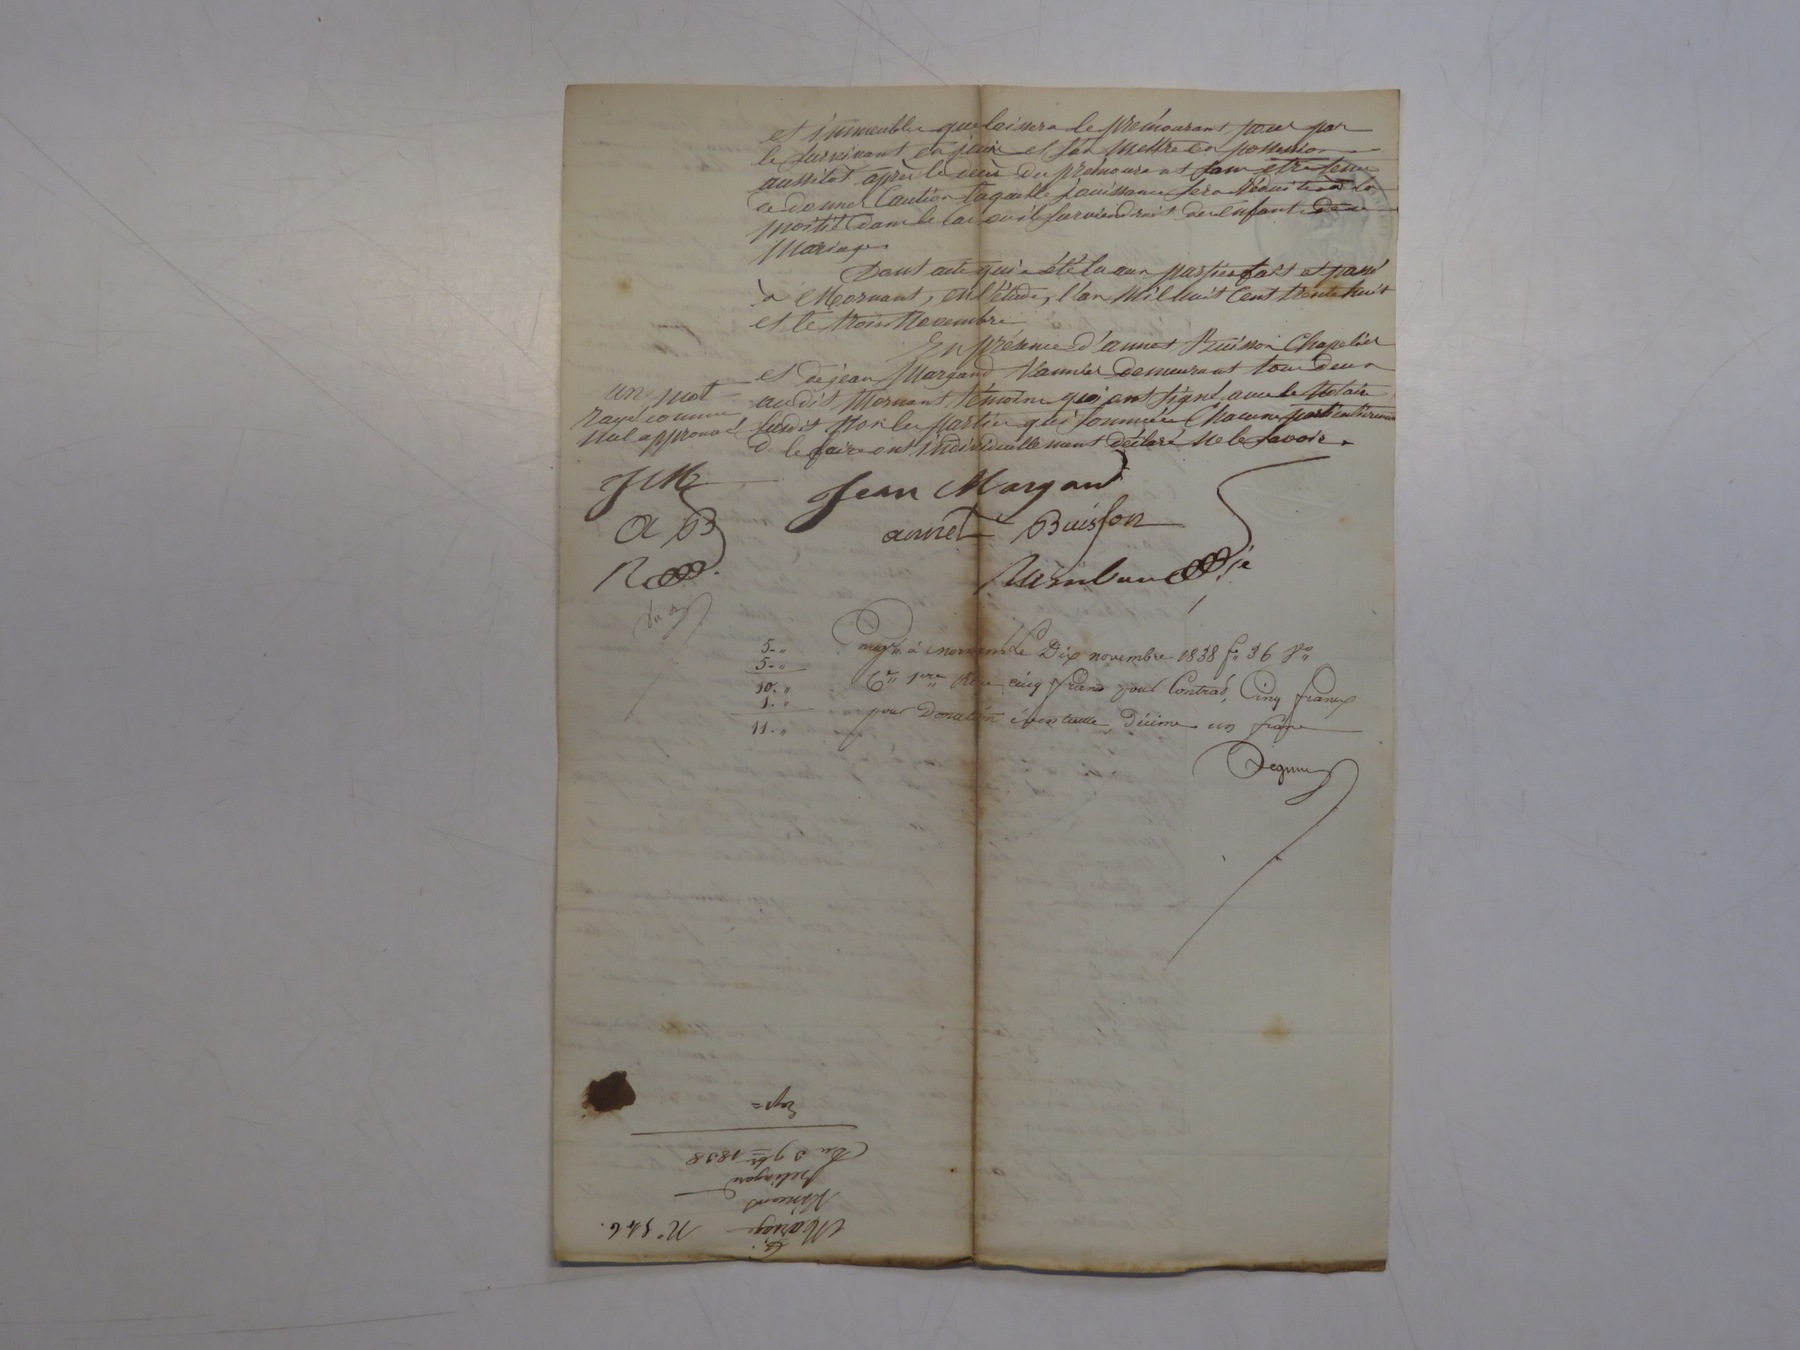 et immeubles que laissera le prémourant pour par
le survivant en jouir et s'en mettre en possession
aussitôt après le décès du prémourant sans être tenu
de donner Caution laquelle jouissance sera réduite à la
moitié dans le cas où il surviendrait des enfants de ce
Mariage
Dont acte qui a été lu aux parties fait et passé
à Mornant, en l'étude, l'an Mil huit Cent trente huit
et le trois Novembre
En présence d'annet Buisson Chapelier
et de jean Margand Vannier demeurant tous deux
audit Mornant témoins qui ont signé avec le Notaire
susdit non les parties qui sommées Chacune particulièrement
de le faire ont individuellement déclaré ne le savoir.
un mot
rayé comme
nul approuvé
JM
A B
R
Jean Margand
annet Buisson
Rambaud
5-"
5-"
10."
1."
11."
Enregré à mornant Le Dix novembre 1838 f° 36 v°
C. 1ere Reçu cinq francs pour Contrat, Cinq francs
pour Donation éventuelle Décime un franc
N° 546.
Mariage
Vincent
Du 3 9bre 1838
Exp=